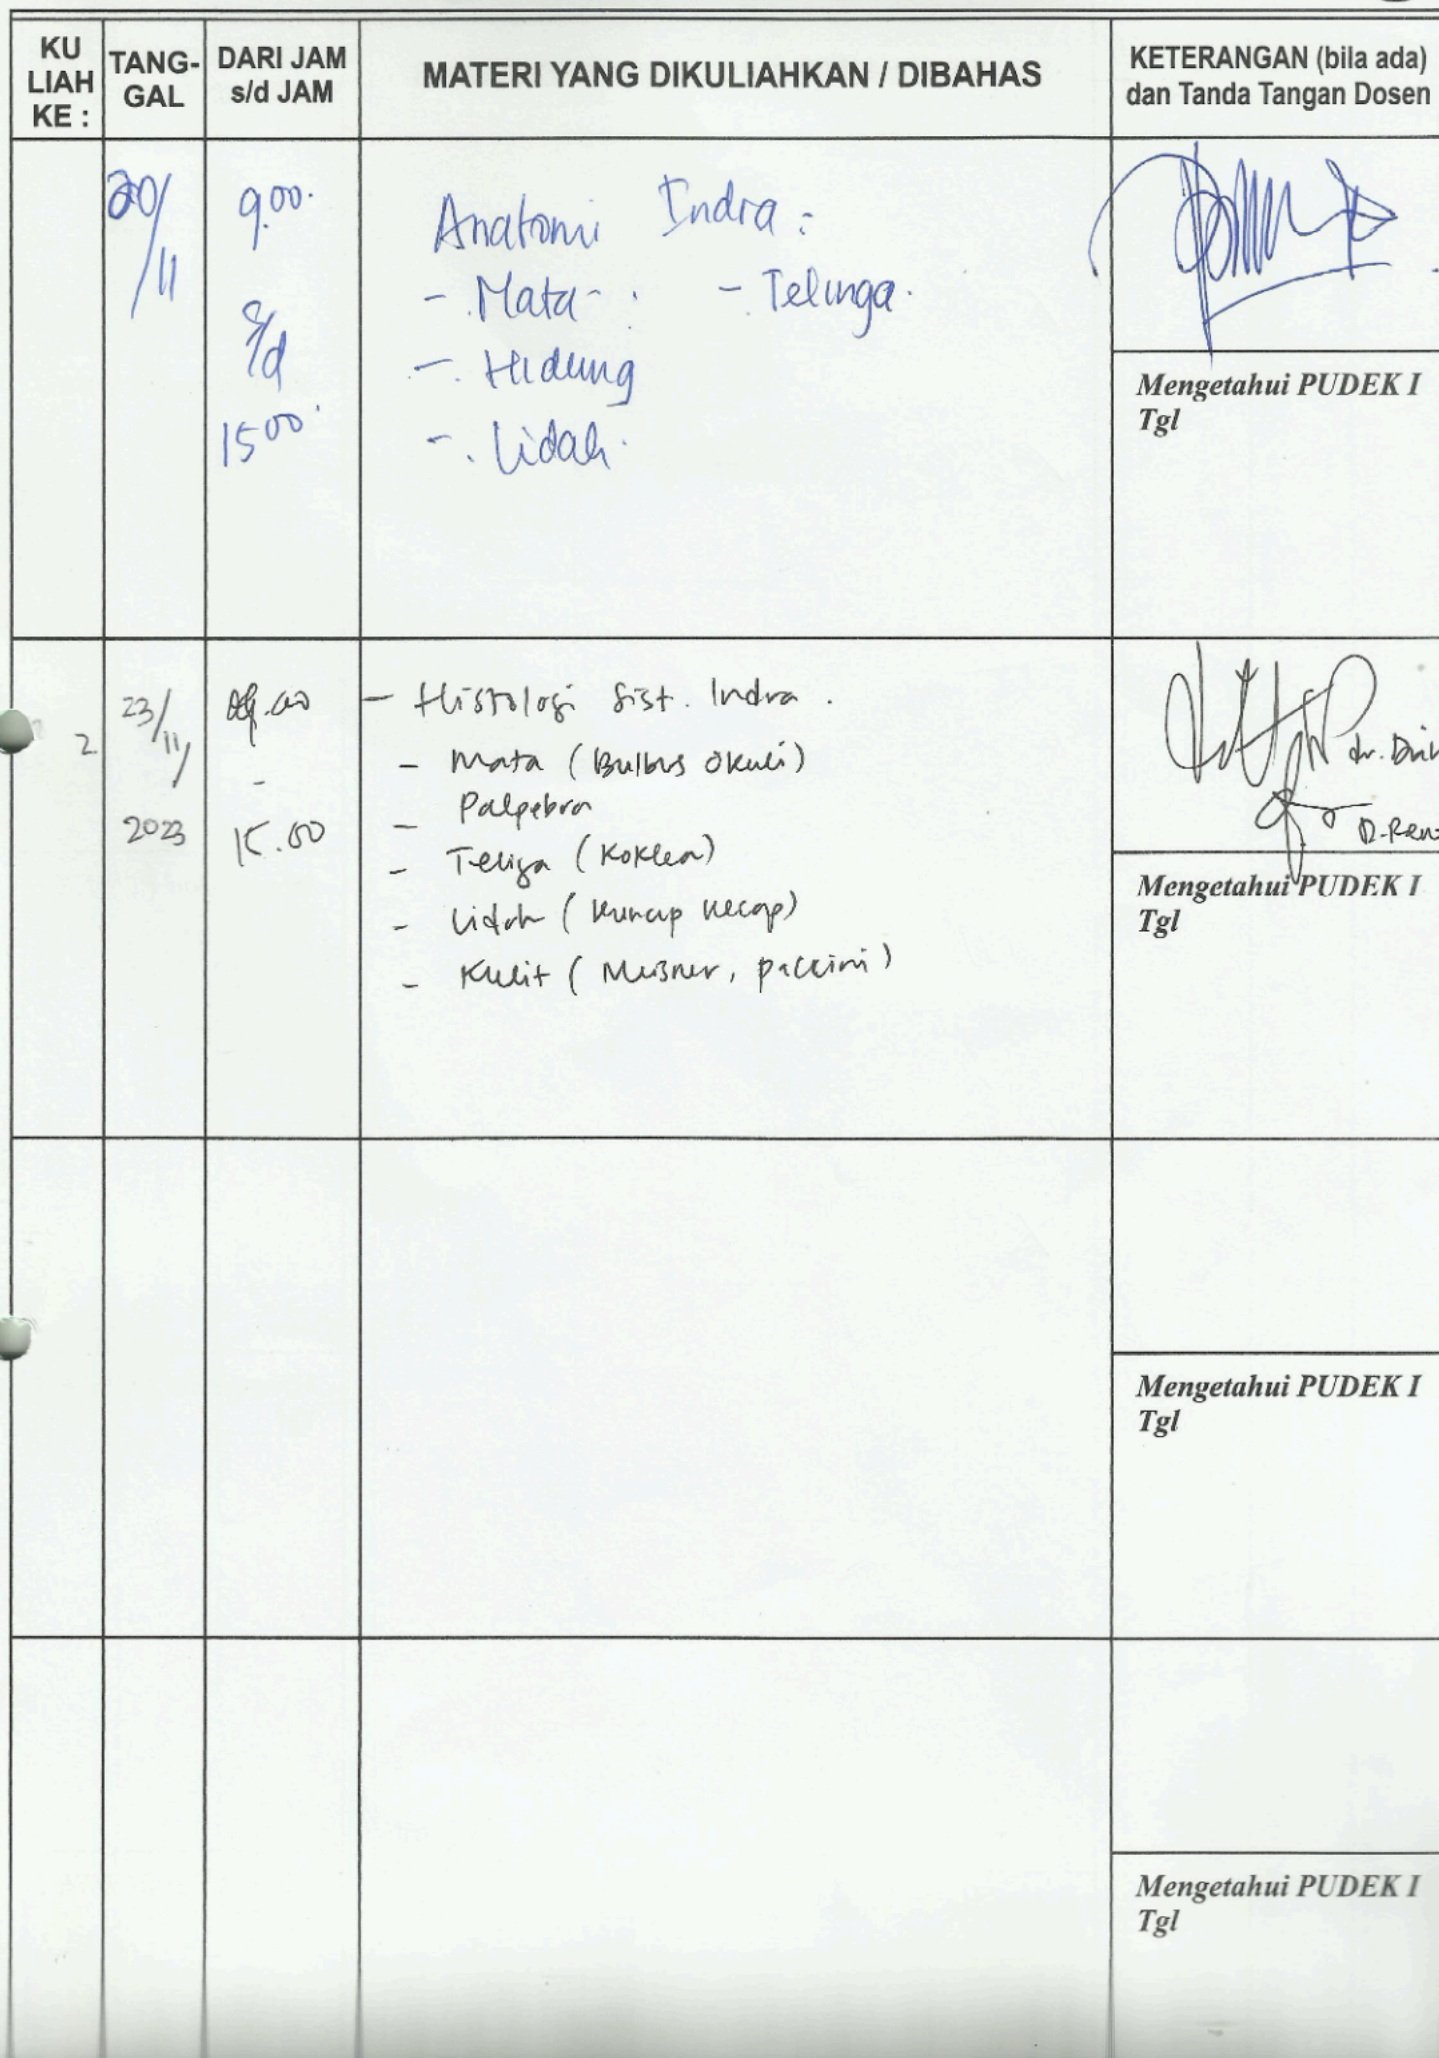 KU LIAH KE :
TANG- GAL
DARI JAM s/d JAM
MATERI YANG DIKULIAHKAN / DIBAHAS
KETERANGAN (bila ada) dan Tanda Tangan Dosen
20/11
9.00
s/d
15.00
Anatomi Indra :
- Mata - Telinga
- Hidung
- Lidah
Mengetahui PUDEK I
Tgl
2
23/11/
2023
09.00
-
15.00
- Histologi Sist. Indra .
- Mata (Bulbus Okuli)
- Palpebra
- Teliga (Koklea)
- Lidah (Kuncup Kecap)
- Kulit (Meisner, paccini)
dr.
Mengetahui PUDEK I
Tgl
Mengetahui PUDEK I
Tgl
Mengetahui PUDEK I
Tgl